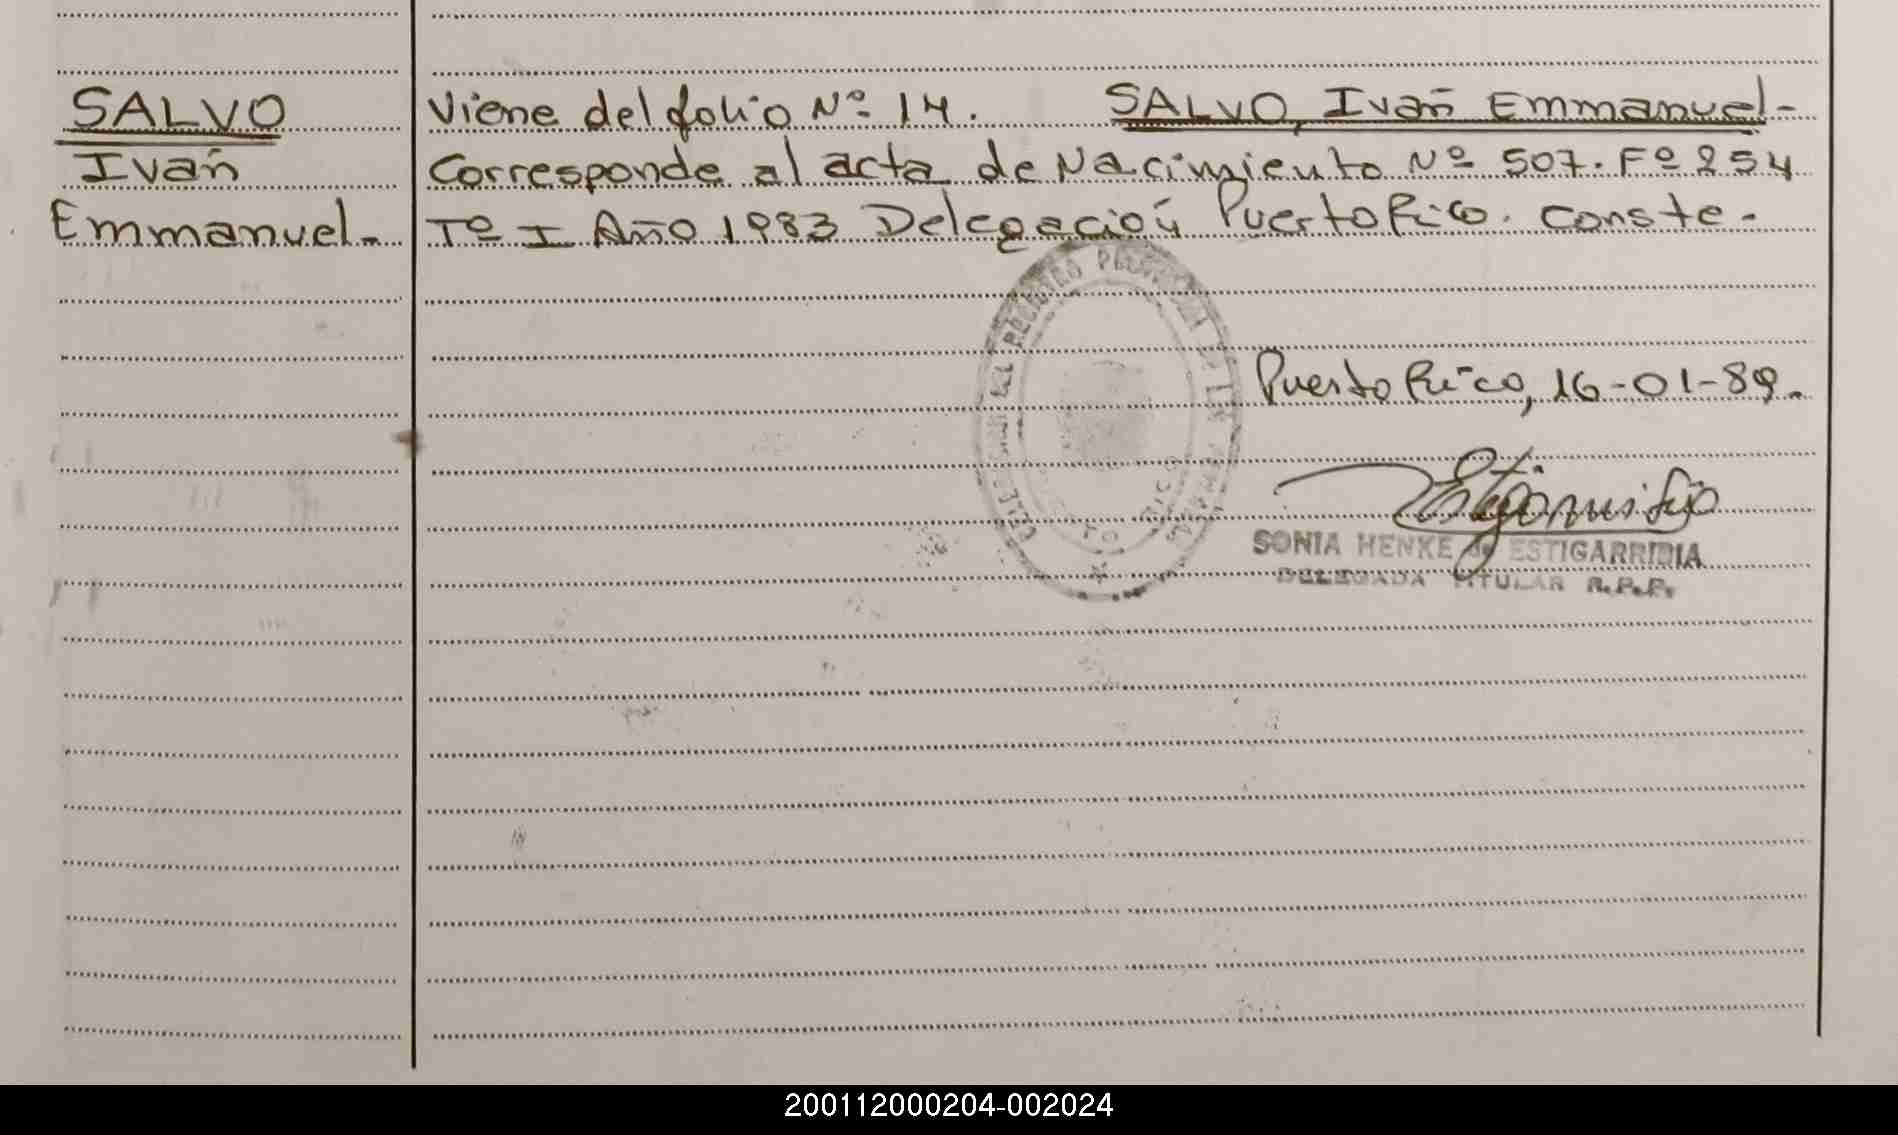 SALVO
Iván
Emmanuel.-
Viene del folio Nº 14. SALVO, Iván Emmanuel-
Corresponde al acta de Nacimiento Nº 507. Fº 254
Tº I Año 1983 Delegación Puerto Rico. Conste-
Puerto Rico, 16-01-89.
SONIA HENKE de ESTIGARRIBIA
DELEGADA TITULAR R.P.P.
DEL REGISTRO PROVINCIAL DE LAS PERSONAS
200112000204-002024